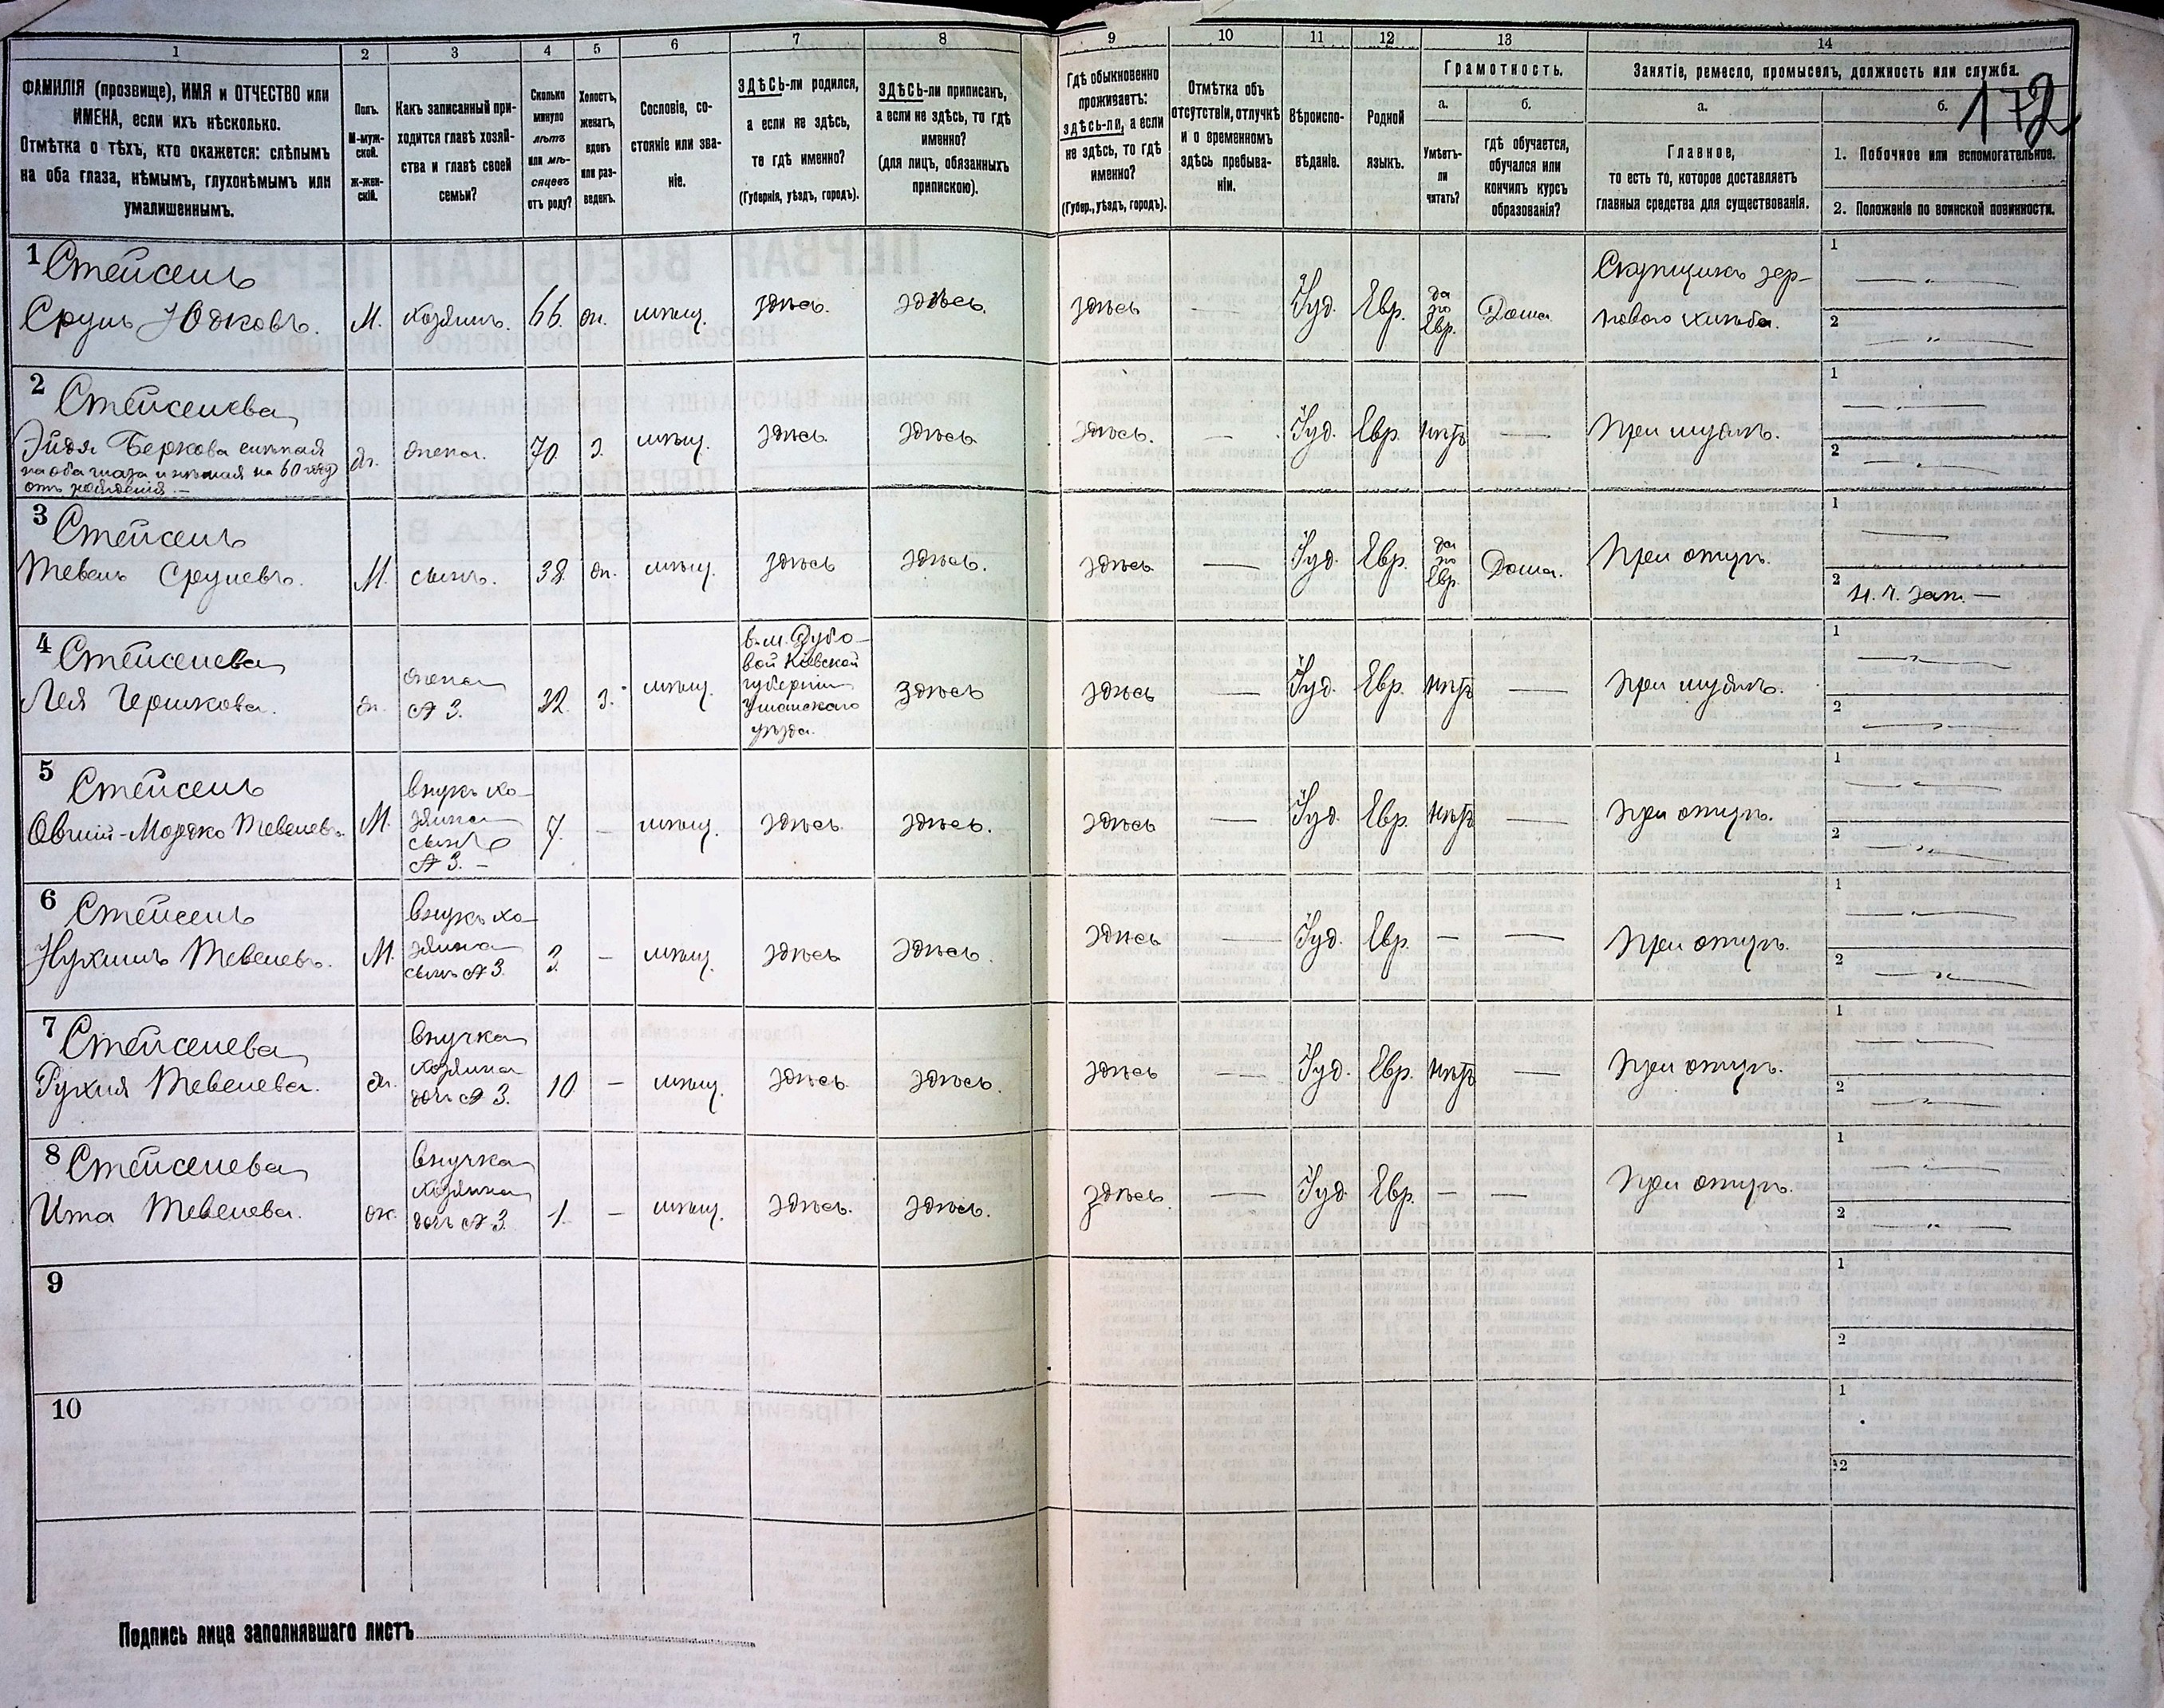 1 2 3 4 5 6 7 8 9 10 11 12 13 14
ФАМИЛІЯ (прозвище), ИМЯ и ОТЧЕСТВО или
ИМЕНА, если ихъ нѣсколько.
Отмѣтка о тѣхъ, кто окажется: слѣпымъ
на оба глаза, нѣмымъ, глухонѣмымъ или
умалишеннымъ.
Полъ.
М-муж-
ской.
Ж-жен-
скій.
Какъ записанный при-
ходится главѣ хозяй-
ства и главѣ своей
семьи?
Сколько
минуло
лѣтъ
или мѣ-
сяцевъ
отъ роду?
Холостъ,
женатъ,
вдовъ
или раз-
веденъ.
Сословіе, со-
стояніе или зва-
ніе.
ЗДѢСЬ-ли родился,
а если не здѣсь,
то гдѣ именно?
(Губернія, уѣздъ, городъ).
ЗДѢСЬ-ли приписанъ,
а если не здѣсь, то гдѣ
именно?
(для лицъ, обязанныхъ
припискою).
Гдѣ обыкновенно
проживаетъ:
здѣсь-ли, а если
не здѣсь, то гдѣ
именно?
(Губер., уѣздъ, городъ).
Отмѣтка объ
отсутствіи, отлучкѣ
и о временномъ
здѣсь пребыва-
ніи.
Вѣроиспо-
вѣданіе.
Родной
языкъ.
Грамотность.
а.
Умѣетъ-
ли
читать?
б.
гдѣ обучается,
обучался или
кончилъ курсъ
образованія?
Занятіе, ремесло, промыселъ, должность или служба.
а.
Главное,
то есть то, которое доставляетъ
главныя средства для существованія.
б.
172
1. Побочное или вспомогательное.
2. Положеніе по воинской повинности.
1 Стейсель
Сруль Юдковъ. М. хозяинъ. 66. жн. мѣщ. здѣсь. здѣсь. здѣсь — Іуд. Евр. да по Евр. Дома. Скупщикъ зер-
нового хлѣба.
1
2
2 Стейселева
Эйдя Беркова слѣпая
на оба глаза и нѣмая на 60 году
отъ рожденія. —
ж. жена. 70. з. мѣщ. здѣсь. здѣсь. здѣсь. — Іуд. Евр. нѣтъ — при мужѣ.
1
2
3 Стейсель
Тевель Срулевъ. М. сынъ. 38. жн. мѣщ. здѣсь здѣсь. здѣсь — Іуд. Евр. да по Евр. Дома. при отцѣ.
1
2
4 Стейселева
Лея Гершкова. ж. жена
№ 3. 32. з. мѣщ.
в м. Дубо-
вой Кіевской
губерніи
Уманскаго
уѣзда.
здѣсь здѣсь — Іуд. Евр. нѣтъ — при мужѣ.
1
2
5 Стейсель
Овший-Мордко Тевелевъ. М.
внукъ хо-
зяина
сынъ
№ 3. —
7. — мѣщ. здѣсь. здѣсь. здѣсь — Іуд. Евр. нѣтъ — при отцѣ.
1
2
6 Стейсель
Нухимъ Тевелевъ. М.
внукъ хо-
зяина
сынъ № 3.
3. — мѣщ. здѣсь здѣсь. здѣсь — Іуд. Евр. — — при отцѣ.
1
2
7 Стейселева
Рухля Тевелева. ж.
внучка
хозяина
дочь № 3.
10 — мѣщ. здѣсь. здѣсь. здѣсь — Іуд. Евр. нѣтъ — при отцѣ.
1
2
8 Стейселева
Ита Тевелева. ж.
внучка
хозяина
дочь № 3.
1. — мѣщ. здѣсь. здѣсь. здѣсь. — Іуд. Евр. — — при отцѣ.
1
2
9
1
2
10
1
2
Подпись лица заполнявшаго листъ